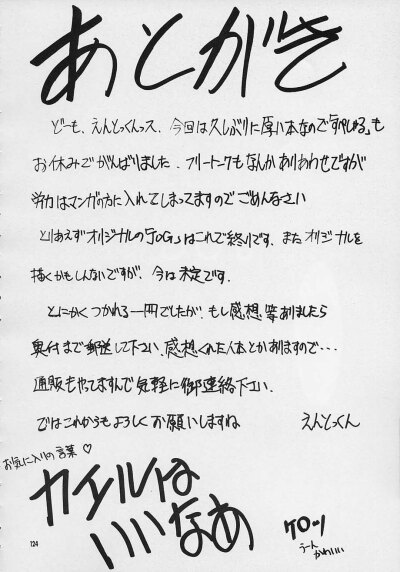 あとがき
どーも、えんとっくんっス、今回は久しぶりに厚い本なので「すぺしゃる」も
お休みでがんばりました、フリートークもなんかありあわせですが
労力はマンガの方に入れてしまってますのでごめんなさい
とりあえずオリジナルの「JOG」はこれで終りです、またオリジナルを
描くかもしんないですが、今は未定です。
とにかくつかれる一冊でしたが、もし感想等ありましたら
奥付まで郵送して下さい、感想くれた人本とかありますので…
通販もやってますんで気軽に御連絡下さい、
ではこれからもよろしくお願いしますね えんとっくん
お気に入りの言葉♡
カエルは
いいなあ
ケロッ
うーん
かわいい
124